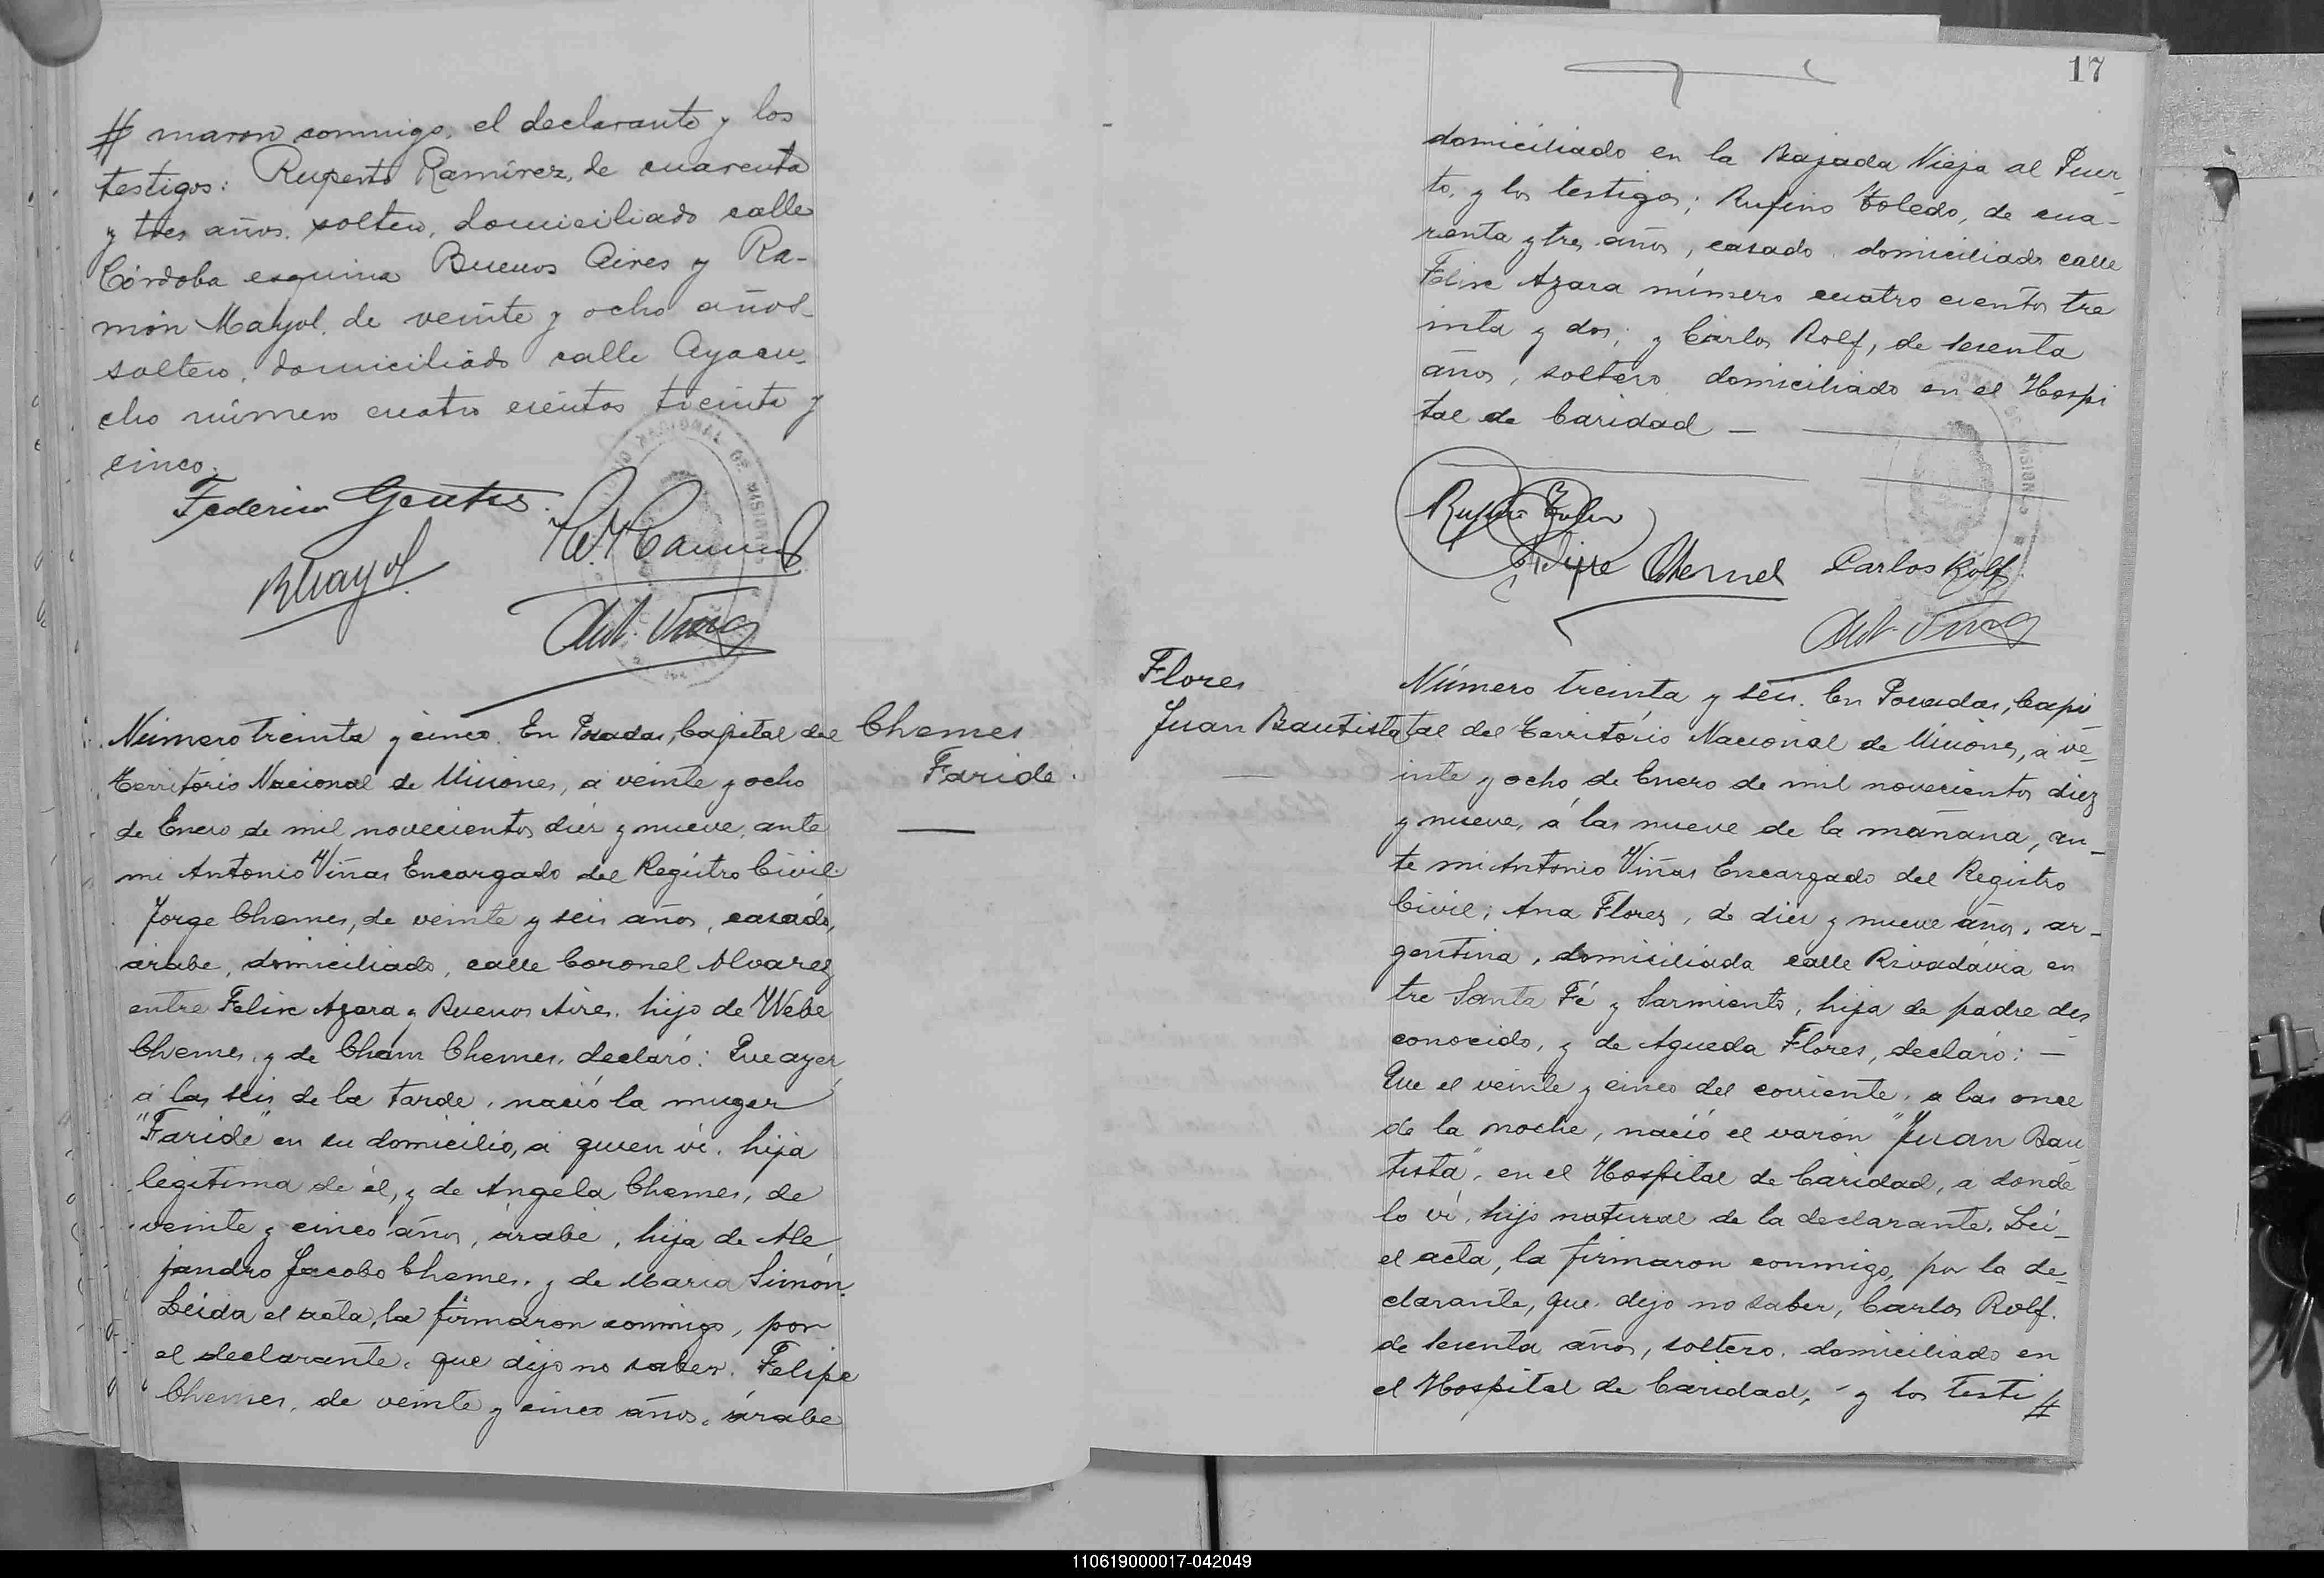 # maron conmigo, el declarante y los
testigos: Ruperto Ramírez, de cuarenta
y tres años, soltero, domiciliado calle
Córdoba esquina Buenos Aires y Ra-
món Mayol, de veinte y ocho años-
soltero, domiciliado calle Ayacu-
cho número cuatro cientos treinta y
cinco.
Federico
RMayol
Ant. Viñas
Número treinta y cinco. En Posadas, Capital del
Territorio Nacional de Misiones, a veinte y ocho
de Enero de mil novecientos diez y nueve, ante
mi Antonio Viñas Encargado del Registro Civil
Jorge Chemes, de veinte y seis años, casado,
árabe, domiciliado, calle Coronel Alvarez
entre Felix Azara y Buenos Aires, hijo de Webe
Chemes, y de Cham Chemes, declaró: Que ayer
á las seis de la tarde, nació la muger
"Faride" en su domicilio, a quien vi, hija
legítima de él, y de Angela Chemes, de
veinte y cinco años, árabe, hija de Ale
jandro Jacobo Chemes, y de Maria Simón.
Leida el acta, la firmaron conmigo, por
el declarante, que dijo no saber, Felipe
Chemes, de veinte y cinco años, árabe
Chemes
Faride.
17
domiciliado en la Bajada Vieja al Puer-
to, y los testigos; Rufino Toledo, de cua-
renta y tres años, casado, domiciliado calle
Felix Azara número cuatro cientos tre
inta y dos, y Carlos Rolf, de sesenta
años, soltero, domiciliado en el Hospi
tal de Caridad —
Rufino Toledo
Felipe Chemes Carlos Rolf.
Ant. Viñas
Flores
Juan Bautista
Número treinta y seis. En Posadas, Capi
tal del Territorio Nacional de Misiones, a ve-
inte y ocho de Enero de mil novecientos diez
y nueve, á las nueve de la mañana, an-
te mi Antonio Viñas Encargado del Registro
Civil; Ana Flores, de diez y nueve años, ar-
gentina, domiciliada calle Rivadavia en
tre Santa Fé y Sarmiento, hija de padre des
conocido, y de Agueda Flores, declaró: —
Que el veinte y cinco del corriente, a las once
de la noche, nació el varón "Juan Bau
tista", en el Hospital de Caridad, a donde
lo vi, hijo natural de la declarante. Lei-
el acta, la firmaron conmigo, por la de-
clarante, que dijo no saber, Carlos Rolf.
de sesenta años, soltero, domiciliado en
el Hospital de Caridad, y los testi #
110619000017-042049